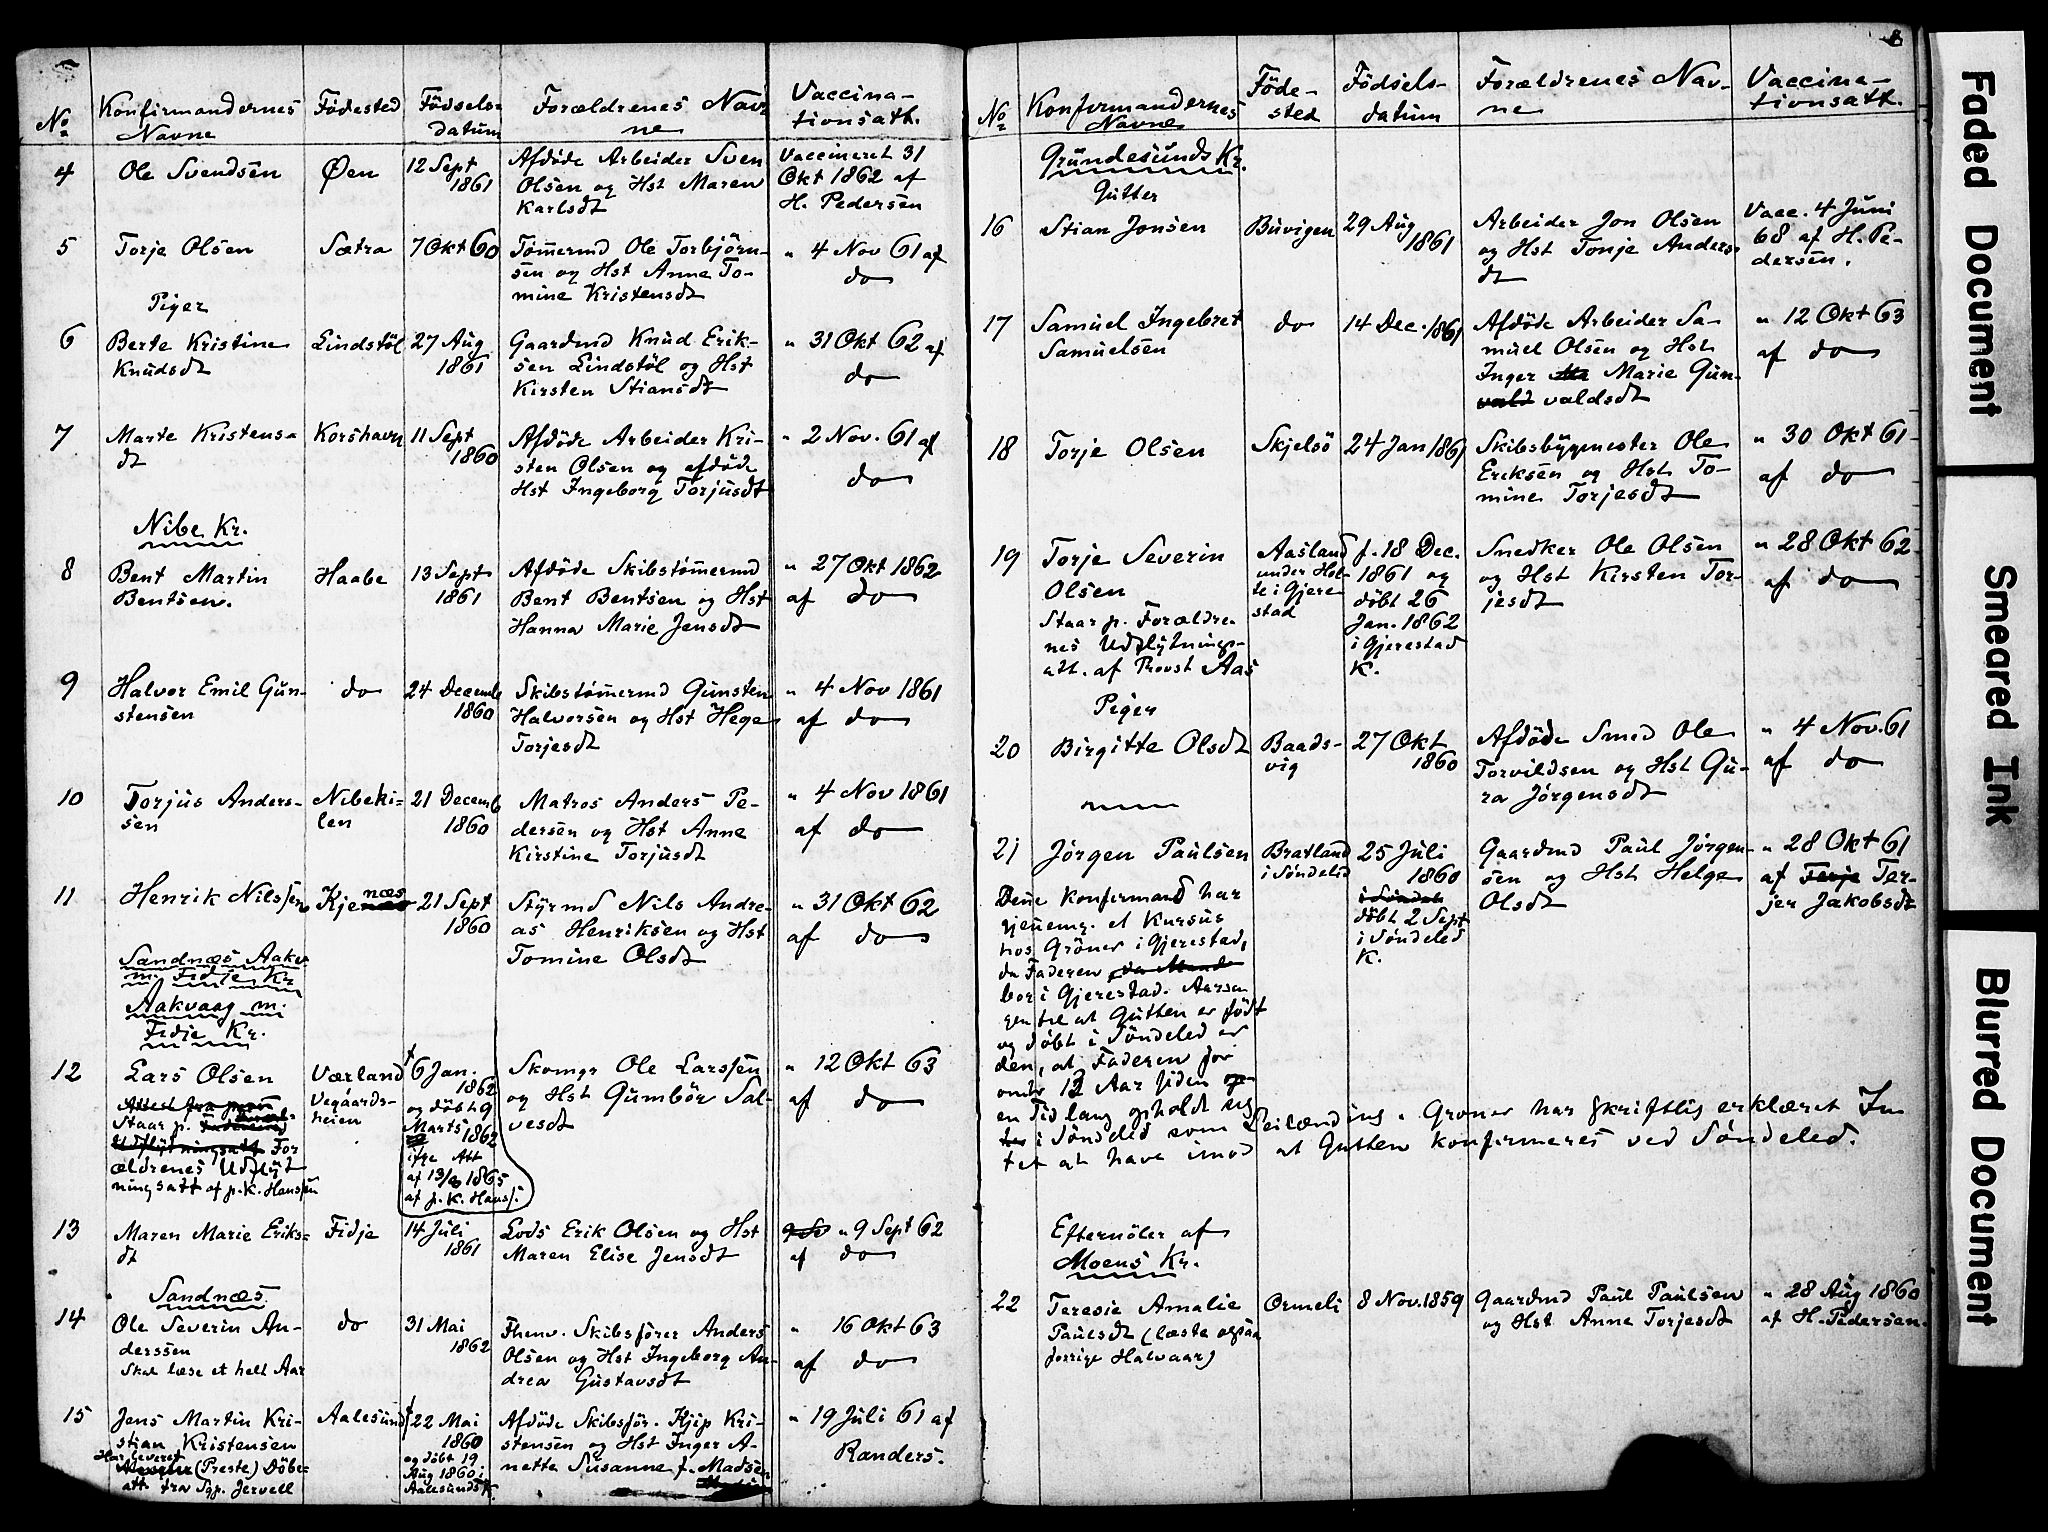 No Konfirmandernes Navne Födested Födselsdatum Forældrenes Navne Vaccinationsatt.
4 Ole Svendsen Øen 12 Sept 1861 Afdöde Arbeider Sven
Olsen og Hst Maren
Karlsdt
Vaccineret 31
Okt 1862 af
H. Pedersen
5 Torje Olsen Sætra 7 Okt 60 Tömermd Ole Torbjörn-
sen og Hst Anne To-
mine Kristensdt
" 4 Nov 61 af
do
Piger
6 Berte Kristine
Knudsdt
Lindstöl 27 Aug
1861
Gaardmd Knud Erik-
sen Lindstöl og Hst
Kirsten Stiansdt
" 31 Okt 62 af
do
7 Marte Kristens-
dt
Korshavn 11 Sept
1860
Afdöde Arbeider Kri-
sten Olsen og afdöde
Hst Ingeborg Torjusdt
" 2 Nov. 61 af
do
Nibe Kr.
8 Bent Martin
Bentsen.
Haabe 13 Sept
1861
Afdöde Skibstömermd
Bent Bentsen og Hst
Hanna Marie Jensdt
" 27 Okt 1862
af do
9 Halvor Emil Gun-
stensen
do 24 Decemb
1860
Skibstömermd Gunsten
Halvorsen og Hst Hege
Torjesdt
" 4 Nov 1861
af do
10 Torjus Anders-
sen
Nibeki-
len
21 Decemb
1860
Matros Anders Pe-
dersen og Hst Anne
Kirstine Torjusdt
" 4 Nov 1861
af do
11 Henrik Nilssen Kjenæs 21 Sept
1860
Styrmd Nils Andre-
as Henriksen og Hst
Tomine Olsdt
" 31 Okt 62
af do
Sandnæs Aakv.
m. Fidje Kr
Aakvaag m.
Fidje Kr.
12 Lars Olsen
Staar p.
Udflytningsatt For
ældrenes Udflyt
ningsatt af p.K. Hanssen
Værland
Vegaards-
heien
f 6 Jan.
1862
og döbt 9
Marts 1862
ifge Att
af 1865
af p.K. Hanss.
Skomgr Ole Larssen
og Hst Gumbör Sal-
vesdt
" 12 Okt 63
af do
13 Maren Marie Eriks-
dt
Fidje 14 Juli
1861
Lods Erik Olsen og Hst
Maren Elise Jensdt
" 9 Sept 62
af do
Sandnæs
14 Ole Severin An-
derssen
Skal læse et helt Aar
do 31 Mai
1862
Fhenv. Skibsförer Anders
Olsen og Hst Ingeborg An-
drea Gustavsdt
" 16 Okt 63
af do
15 Jens Martin Kri-
stian Kristensen
Har leveret
(Preste) Döbe-
att fra Sgp. Jervell
Aalesund f 22 Mai
1860
og döbt 19
Aug 1860 i
Aalesunds K.
Afdöde Skibsför. Kjip Kri-
stensen og Hst Inger A-
nette Susanne f. Madsen
" 19 Juli 61 af
Randers.
8
No Konfirmandernes Navne Födested Födselsdatum Forældrenes Navne Vaccinationsatt.
Grundesunds Kr.
Gutter
16 Stian Jonsen Buvigen 29 Aug
1861
Arbeider Jon Olsen
og Hst Tonje Anders
dt
Vacc. 4 Juni
68 af H. Pe-
dersen.
17 Samuel Ingebret
Samuelsen
do 14 Dec. 1861 Afdöde Arbeider Sa-
muel Olsen og Hst
Inger Ma Marie Gun-
vald valdsdt
" 12 Okt 63
af do
18 Torje Olsen Skjelsö 24 Jan 1861 Skibsbygmester Ole
Eriksen og Hst To-
mine Torjesdt
" 30 Okt 61
af do
19 Torje Severin
Olsen
Staar p. Forældre-
nes Udflytnings-
att. af Provst Aas
Aasland
under Hol-
te i Gjere
stad
f. 18 Dec.
1861 og
döbt 26
Jan. 1862
i Gjerestad
K.
Snedker Ole Olsen
og Hst Kirsten Tor-
jesdt
" 28 Okt 62
af do
Piger
20 Birgitte Olsdt Baads-
vig
27 Okt
1860
Afdöde Smed Ole
Torvildsen og Hst Gu-
ra Jörgensdt
" 4 Nov. 61
af do
21 Jörgen Paulsen Bratland
i Söndeled
25 Juli
1860
i Söndel
döbt 2 Sept
i Söndeled
K.
Gaardmd Paul Jörgen-
sen og Hst Helge
Olsdt
" 28 Okt 61
af Terje Ter-
jer Jakobsdt
Denne Konfirmand har
gjennemg. et Kursus
hos Gröner i Gjerestad,
da Faderen
bor i Gjerestad. Aarsa
gen til at Gutten er födt
og döbt i Söndeled er
den, at Faderen for
omtr 12 Aar siden
en Tid lang opholdt sig
i Söndeled som Leilænding. Groner har skriftlig erklæret In
tet at have imod at Gutten konfirmeres ved Söndeled.
Efternöler af
Moens Kr.
22 Teresie Amalie
Paulsdt (læste ogsaa
forrige Halvaar)
Ormeli 8 Nov. 1859 Gaardmd Paul Paulsen
og Hst Anne Torjesdt
" 28 Aug 1860
af H. Pedersen.
Faded Document
Smeared Ink
Blurred Document